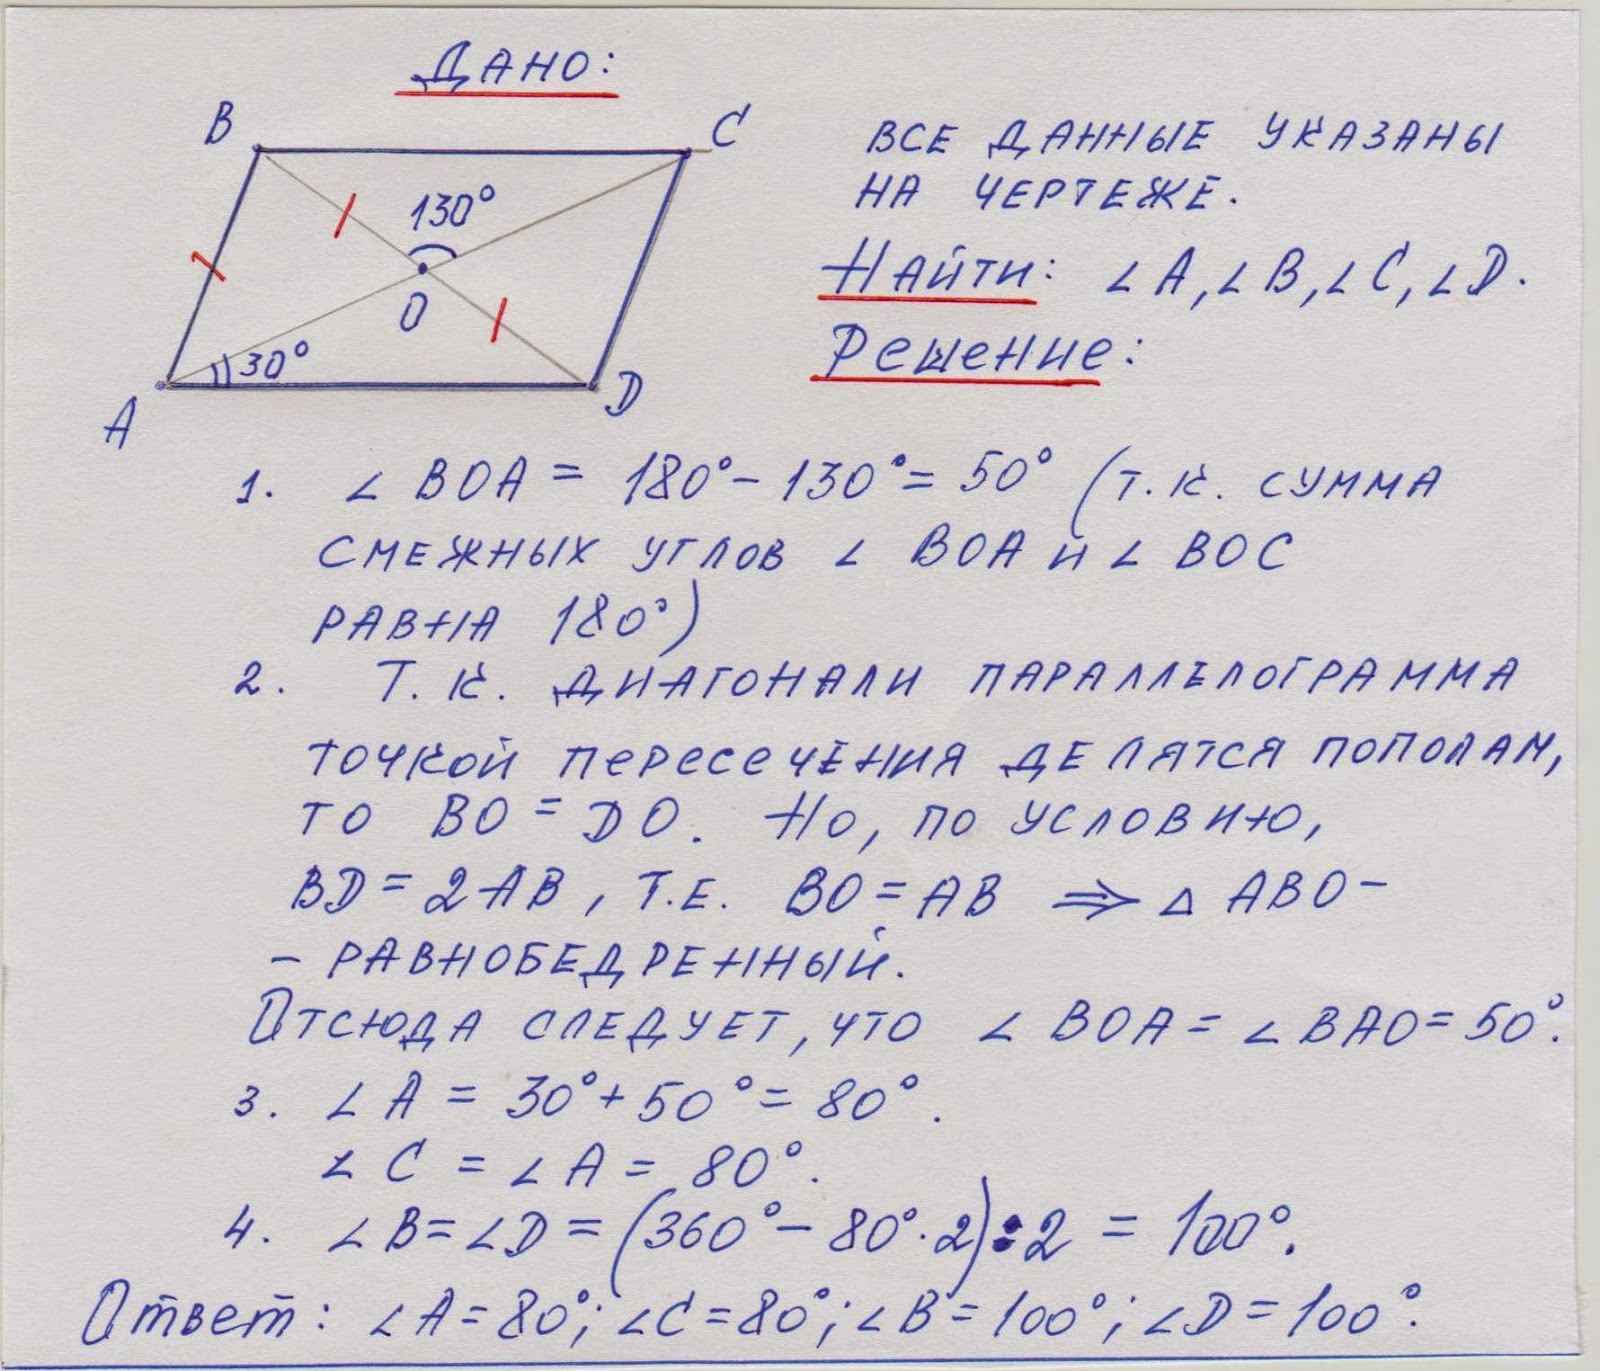 Дано:
B
C
130°
O
30°
A
D
ВСЕ ДАННЫЕ УКАЗАНЫ
НА ЧЕРТЕЖЕ.
Найти: ∠A, ∠B, ∠C, ∠D.
Решение:
1. ∠BOA = 180° - 130° = 50° (Т.К. СУММА
СМЕЖНЫХ УГЛОВ ∠BOA и ∠BOC
РАВНА 180°)
2. Т.К. ДИАГОНАЛИ ПАРАЛЛЕЛОГРАММА
ТОЧКОЙ ПЕРЕСЕЧЕНИЯ ДЕЛЯТСЯ ПОПОЛАМ,
ТО BO = DO. Но, ПО УСЛОВИЮ,
BD = 2AB, Т.Е. BO = AB ⇒ △ABO -
- РАВНОБЕДРЕННЫЙ.
ОТСЮДА СЛЕДУЕТ, ЧТО ∠BOA = ∠BAO = 50°.
3. ∠A = 30° + 50° = 80°.
∠C = ∠A = 80°.
4. ∠B = ∠D = (360° - 80° · 2) : 2 = 100°.
Ответ: ∠A = 80°; ∠C = 80°; ∠B = 100°; ∠D = 100°.